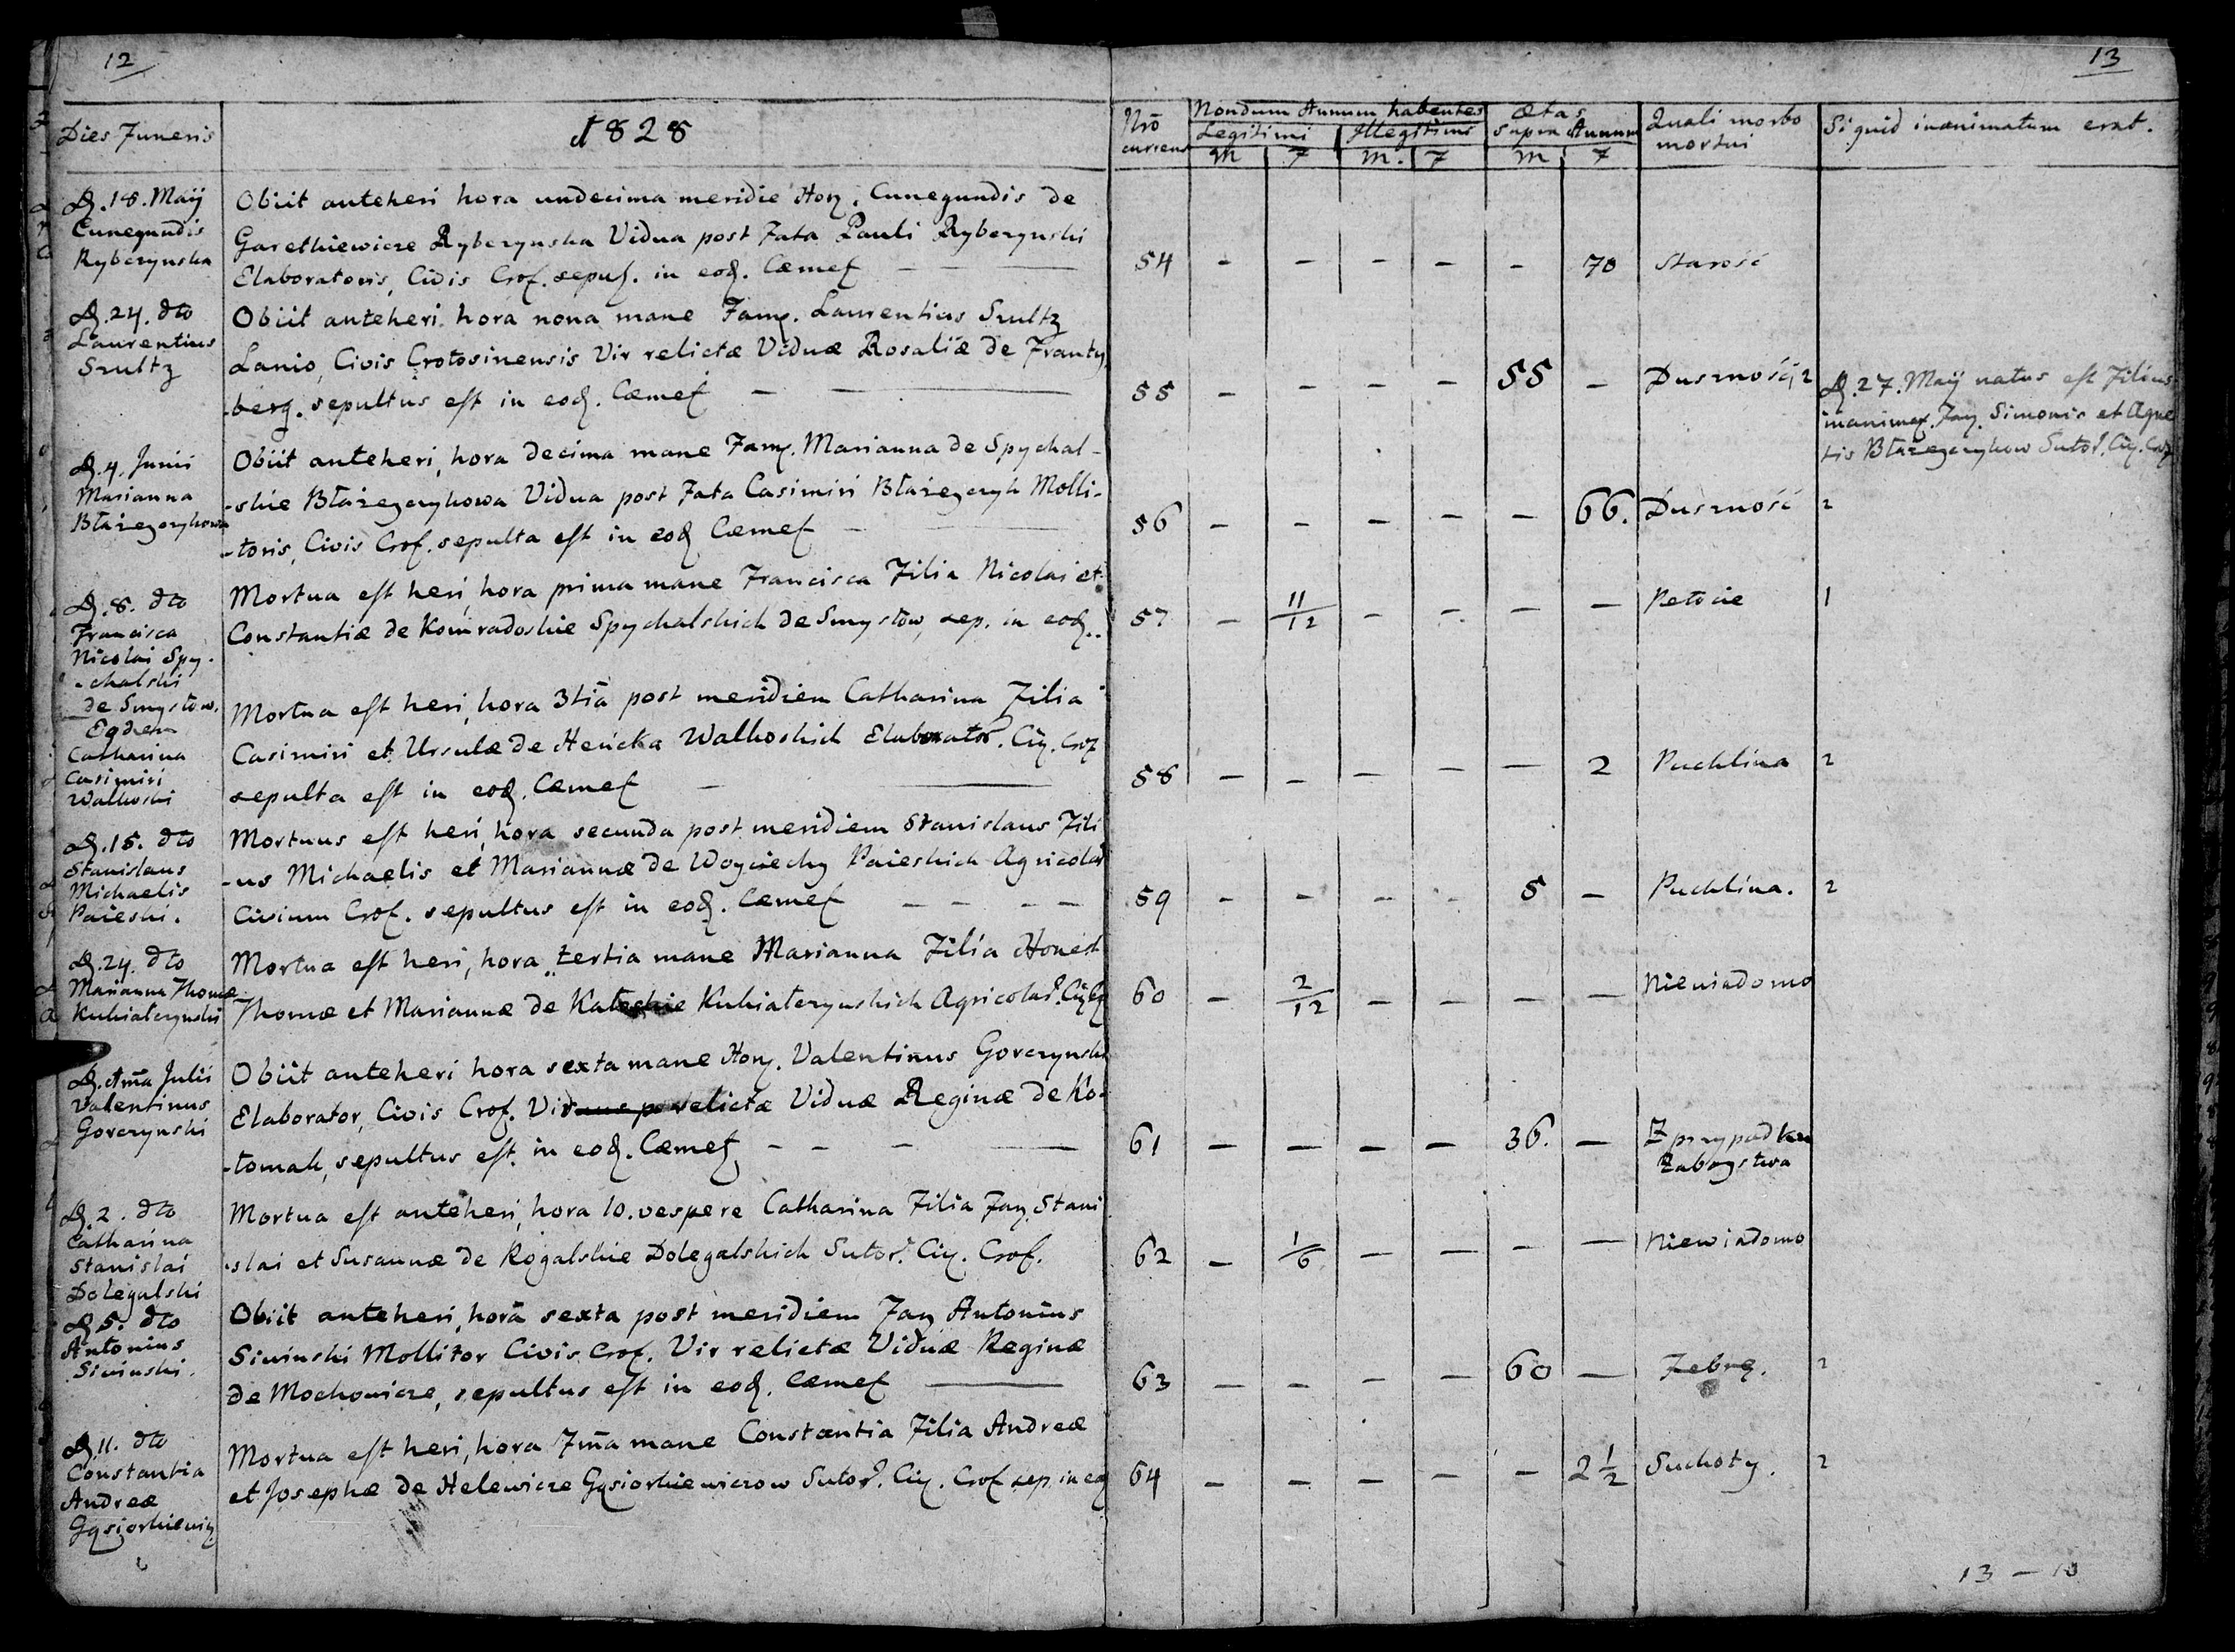 12
13
Dies Funeris
1828
Nrō curens
Nondum Annum habentes
Legitimi
Illegitimi
Ætas supra Annum
M F M. F M F
Quali morbo mortui
Si quid inanimatum erat.
D. 18. Maÿ
Cunegundis
Ryberynska
Obiit anteheri hora undecima meridie Hon. Cunegundis de
Garethiewicze Ryberynska Vidua post Fata Pauli Ryberynski
Elaboratoris, Civis Crot. sepul. in eod. Cæmet
54 - - - - - 70 Starość
D. 24. dto
Laurentius
Szultz
Obiit anteheri hora nona mane Fam. Laurentius Szultz
Lanio, Civis Crotosinensis Vir relictæ Viduæ Rosaliæ de Frantz
-berg. sepultus est in eod. Cæmet
55 - - - - 55 - Duszność, 2
D. 27. Maÿ natus est Filius
inanimat. Fam. Simonis et Agne
tis Błażeyczykow Sutor. Civ. Crot
D. 4. Junii
Marianna
Błażeyczykowa
Obiit anteheri, hora decima mane Fam. Marianna de Spychal-
-skie Błażeyczykowa Vidua post Fata Casimiri Błażeyczyk Molli-
-toris, Civis Crot. sepulta est in eod Cæmet
56 - - - - - 66. Duszność 2
D. 8. dto
Francisca
Nicolai Spy-
-chalski
de Smyslow.
Mortua est heri, hora prima mane Francisca Filia Nicolai et
Constantiæ de Konradoskie Spychalskich de Smysłow, sep. in eod..
57 - 11/12 - - - - 1
Eodem
Catharina
Casimiri
Walkoski
Mortua est heri, hora 3tiā post meridiem Catharina Filia
Casimiri et Ursulæ de Hencka Walkoskich Elaborator. Civ. Crot
sepulta est in eod. Cæmet
58 - - - - - 2 Puchlina 2
D. 15. dto
Stanislaus
Michaelis
Paieski.
Mortuus est heri, hora secunda post meridiem Stanislaus Fili
-us Michaelis et Mariannæ de Woyciechy Paieskich Agricolar
Civium Crot. sepultus est in eod. Cæmet
59 - - - - 5 - Puchlina. 2
D. 24. dto
Marianna Thomæ
Kubiaterynski
Mortua est heri, hora tertia mane Marianna Filia Honest
Thomæ et Mariannæ de Kubiaterynskich Agricolar. Civ. Crot
60 - 2/12 - - - - Niewiadomo
D. 1mā Julii
Valentinus
Gorczynski
Obiit anteheri hora sexta mane Hon. Valentinus Gorczynski
Elaborator, Civis Crot. Vir relictæ Viduæ Reginæ de Ko-
-tomak, sepultus est in eod. Cæmet
61 - - - - 36. - Z przypadku
zaboystwa
D. 2. dto
Catharina
Stanislai
Dolegalski
Mortua est anteheri, hora 10. vespere Catharina Filia Fam. Stani
-slai et Susannæ de Rogalskie Dolegalskich Sutor. Civ. Crot.
62 - 1/6 - - - - Niewiadomo
D. 5. dto
Antonius
Siwinski.
Obiit anteheri, horā sexta post meridiem Fam Antonius
Siwinski Mollitor Civis Crot. Vir relictæ Viduæ Reginæ
de Mochowicze, sepultus est in eod. Cæmet
63 - - - - 60 - Febrą. 2
D. 11. dto
Constantia
Andreæ
Gąsiorkiewicz
Mortua est heri, hora 7mā mane Constantia Filia Andreæ
et Josephæ de Helewicze Gąsiorkiewiczow Sutor. Civ. Crot sep. in eod
64 - - - - - 2 1/2 Suchoty. 2
13 - 10